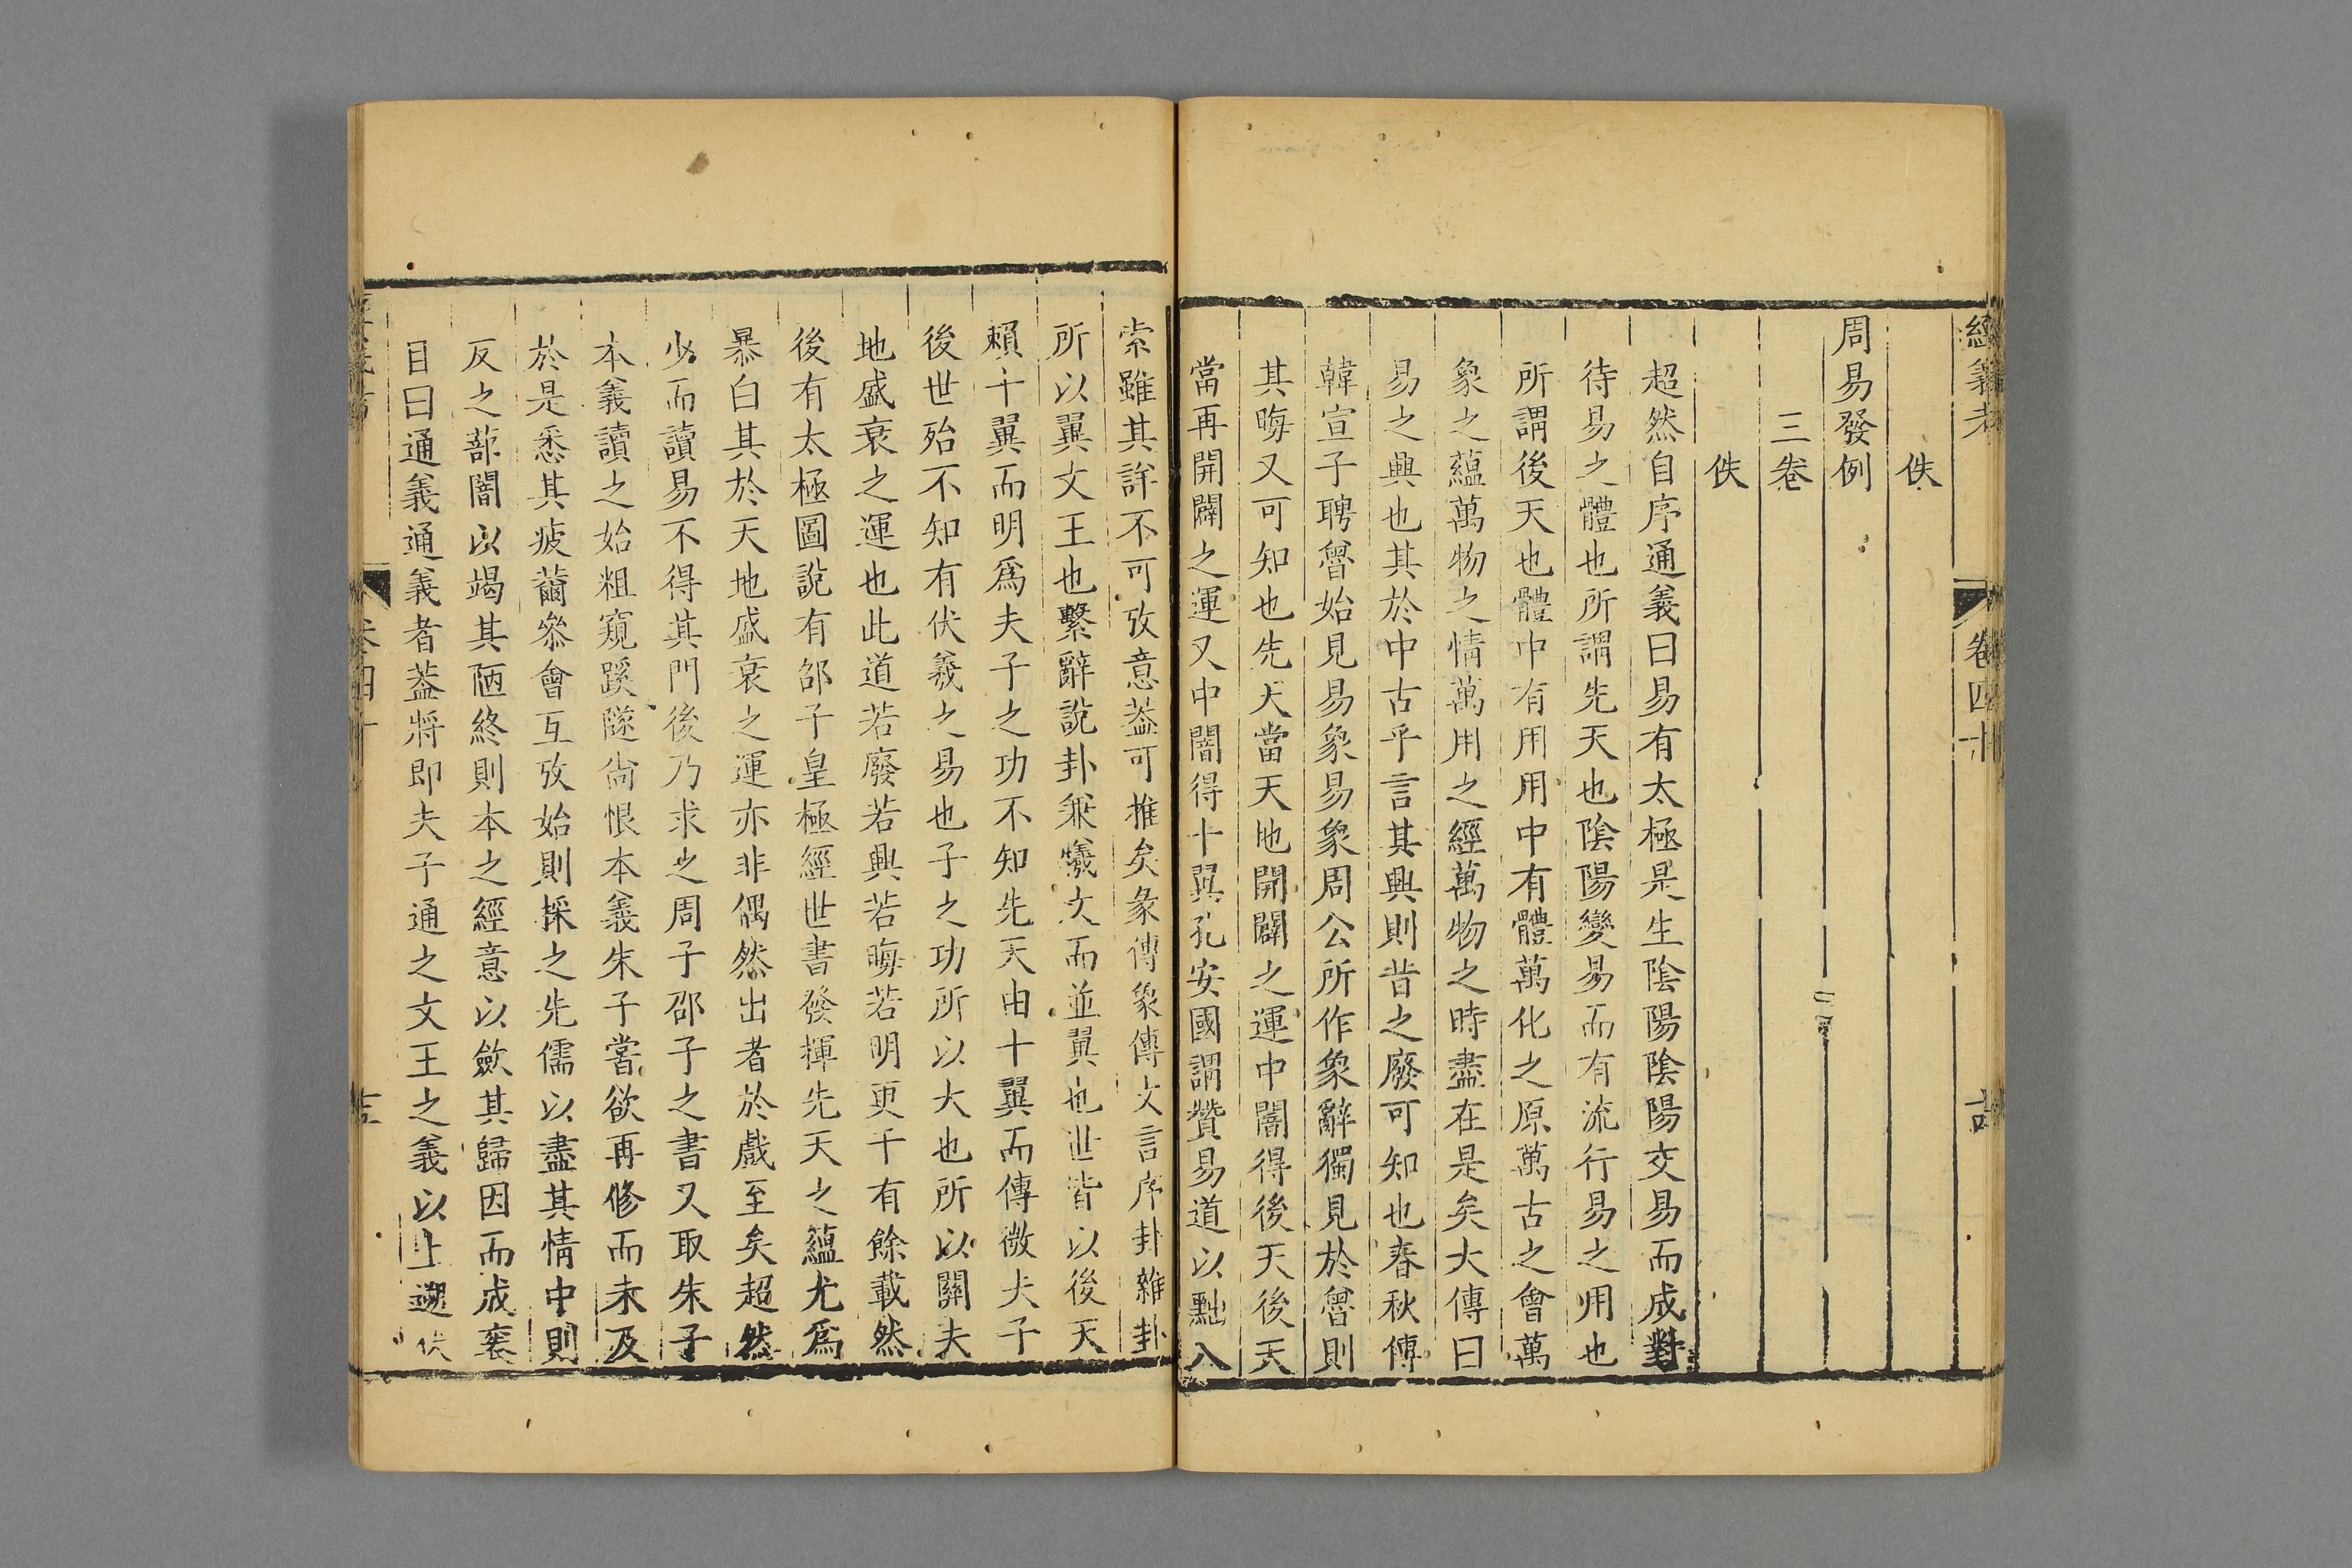 經義考
卷四十
佚
周易發例
三卷
佚
超然自序通義曰易有太極是生陰陽陰陽交易而成對
待易之體也所謂先天也陰陽變易而有流行易之用也
所謂後天也體中有用用中有體萬化之原萬古之會萬
象之蘊萬物之情萬用之經萬物之時盡在是矣大傳曰
易之興也其於中古乎言其興則昔之廢可知也春秋傳
韓宣子聘魯始見易象易象周公所作象辭獨見於魯則
其晦又可知也先天當天地開闢之運中闇得後天後天
當再開闢之運又中闇得十翼孔安國謂贊易道以黜八
索雖其詳不可攷意葢可推矣彖傳象傳文言序卦雜卦
所以翼文王也繫辭說卦兼犧文而並翼也世皆以後天
賴十翼而明爲夫子之功不知先天由十翼而傳微夫子
後世殆不知有伏羲之易也子之功所以大也所以關夫
地盛衰之運也此道若廢若興若晦若明更千有餘載然
後有太極圖說有邵子皇極經世書發揮先天之蘊尤爲
暴白其於天地盛衰之運亦非偶然出者於戲至矣超然
少而讀易不得其門後乃求之周子邵子之書又取朱子
本義讀之始粗窺蹊隧尚恨本義朱子嘗欲再修而未及
於是悉其疲薾叅會互攷始則採之先儒以盡其情中則
反之蔀闇以竭其陋終則本之經意以斂其歸因而成袠
目曰通義通義者葢將即夫子通之文王之義以上遡伏
卷四十